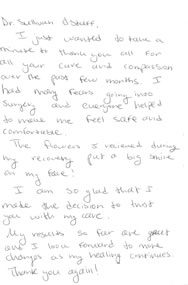 Dr. Sullivan & Staff,
I just wanted to take a
minute to thank you all for
all your care and compassion
over the past few months. I
had many fears going into
surgery and everyone helped
to make me feel safe and
comfortable.
The flowers I recieved during
my recovery put a big smile
on my face!
I am so glad that I
made the decision to trust
you with my care.
My results so far are great
and I look forward to more
changes as my healing continues.
Thank you again!